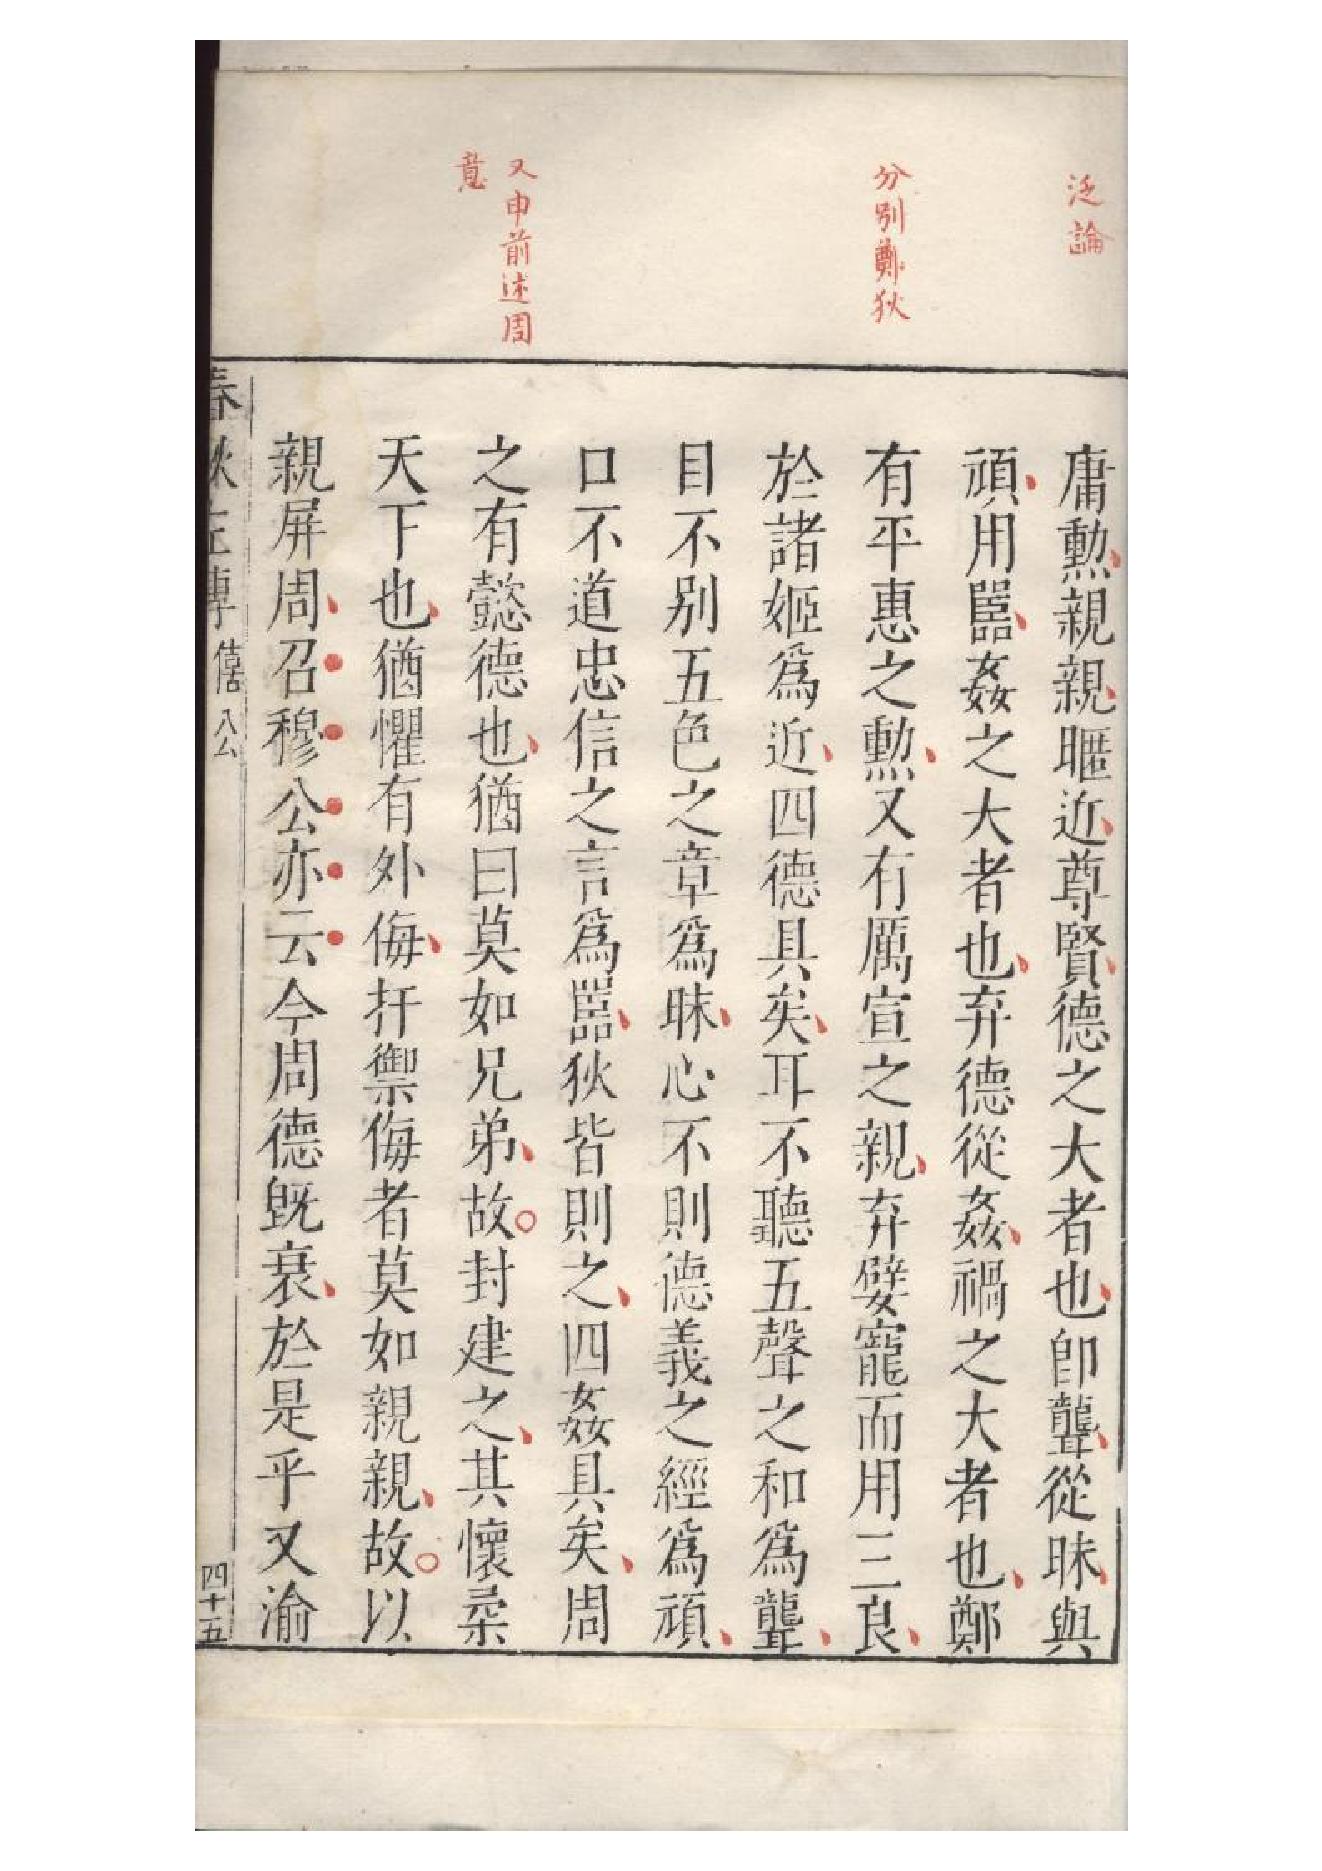 泛論
分別鄭狄
又申前述周
意
庸勲親親暱近尊賢德之大者也卽聾從昧與
頑用嚚姦之大者也弃德從姦禍之大者也鄭
有平惠之勲又有厲宣之親弃嬖寵而用三良
於諸姬爲近四德具矣耳不聽五聲之和爲聾
目不别五色之章爲昧心不則德義之經爲頑
口不道忠信之言爲嚚狄皆則之四姦具矣周
之有懿德也猶曰莫如兄弟故封建之其懷柔
天下也猶懼有外侮扞禦侮者莫如親親故以
親屏周召穆公亦云今周德旣衰於是乎又渝
春秋左傳 僖公 四十五